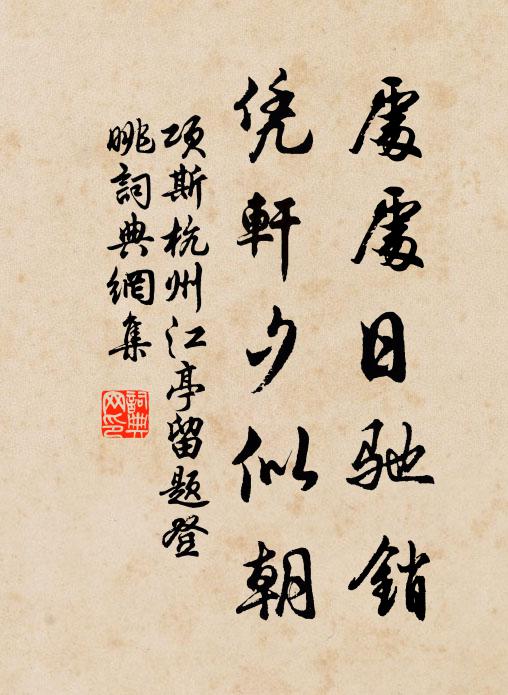 處處日馳銷
凭軒夕似朝
項斯杭州江亭留題登
眺詞典網集
詞典
网印